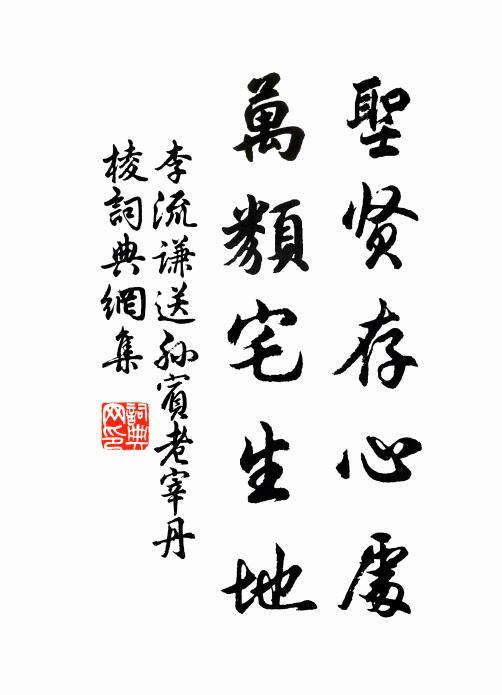 聖贤存心處
萬類宅生地
李流謙送孙賓老宰丹
棱詞典網集
詞典
网印